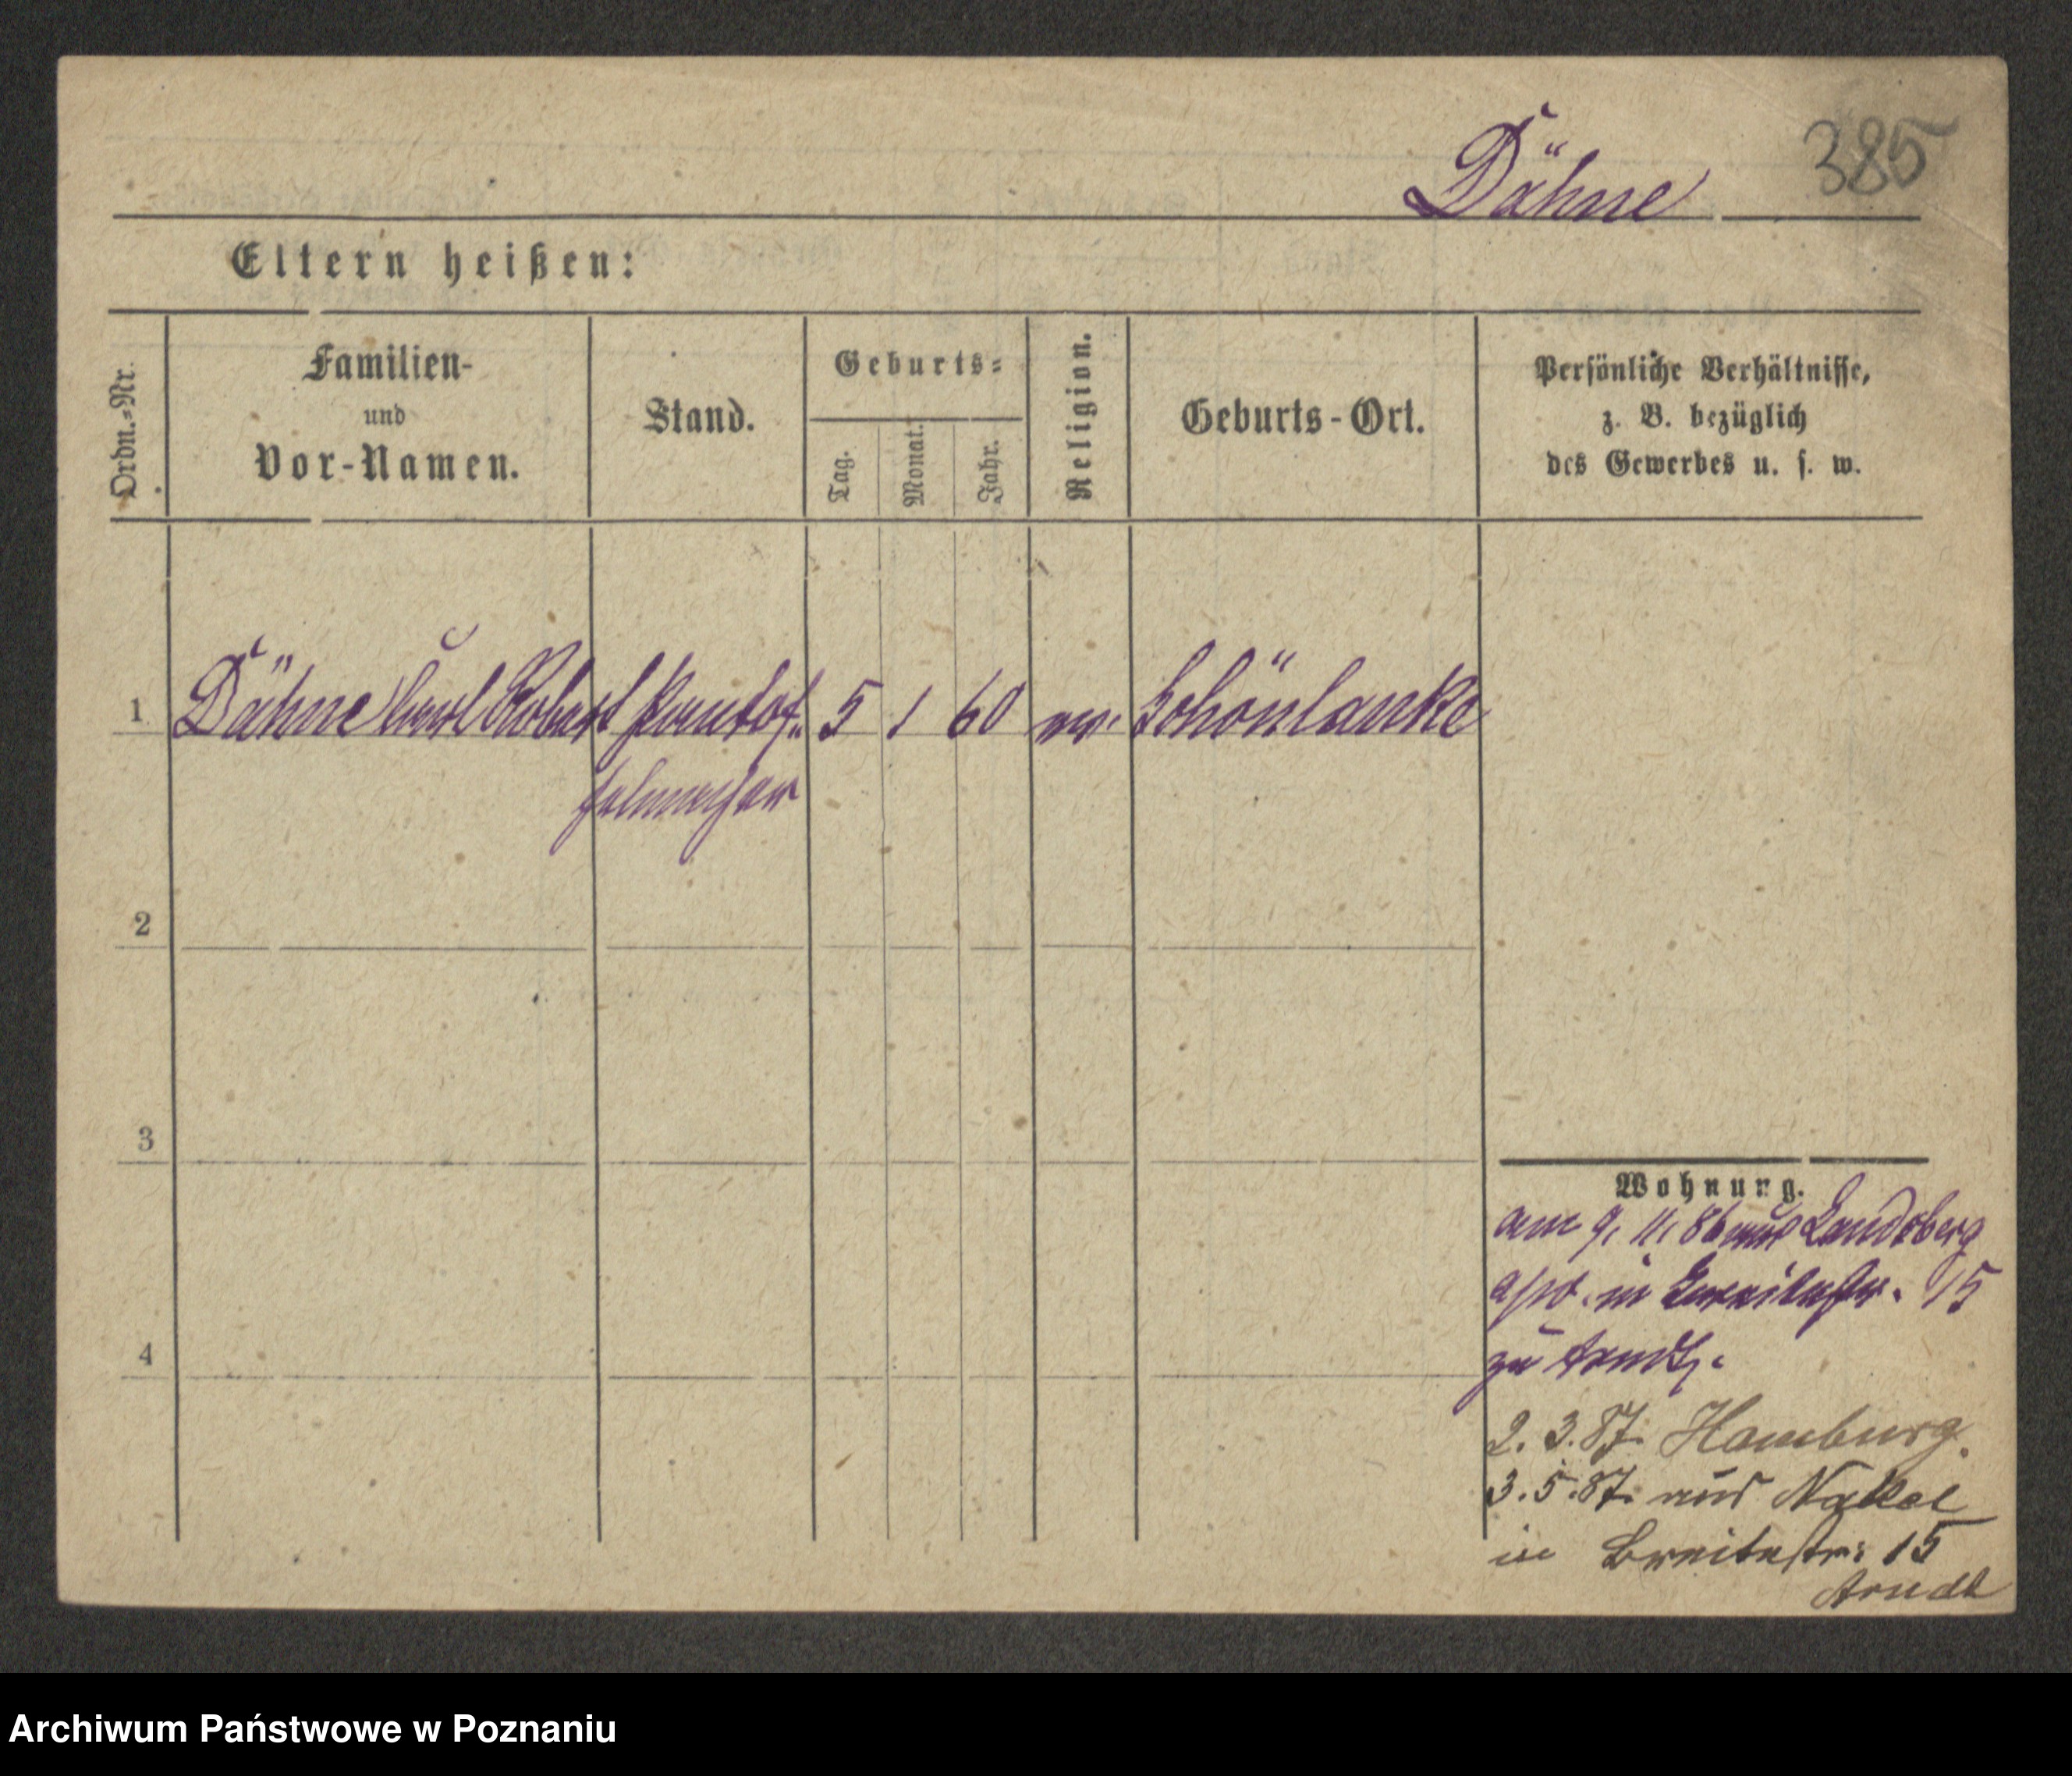 Dähne 385
Eltern heißen:
Ordn.=Nr.
Familien-
und
Vor-Namen.
Stand.
Geburts=
Tag.
Monat.
Jahr.
Religion.
Geburts-Ort.
Persönliche Verhältnisse,
z. B. bezüglich
des Gewerbes u. s. w.
1 Dähne Carl Robert Pantof- 5 1 60 ev. Schönlanke
felmacher
2
3
4
Wohnung.
am 9. 11. 86 aus Landsberg
a/W. in Breitestr. 15
zu Arndt.
2. 3. 87. Hamburg.
3. 5. 87. aus Nakel
in Breitestr: 15
Arndt
Archiwum Państwowe w Poznaniu